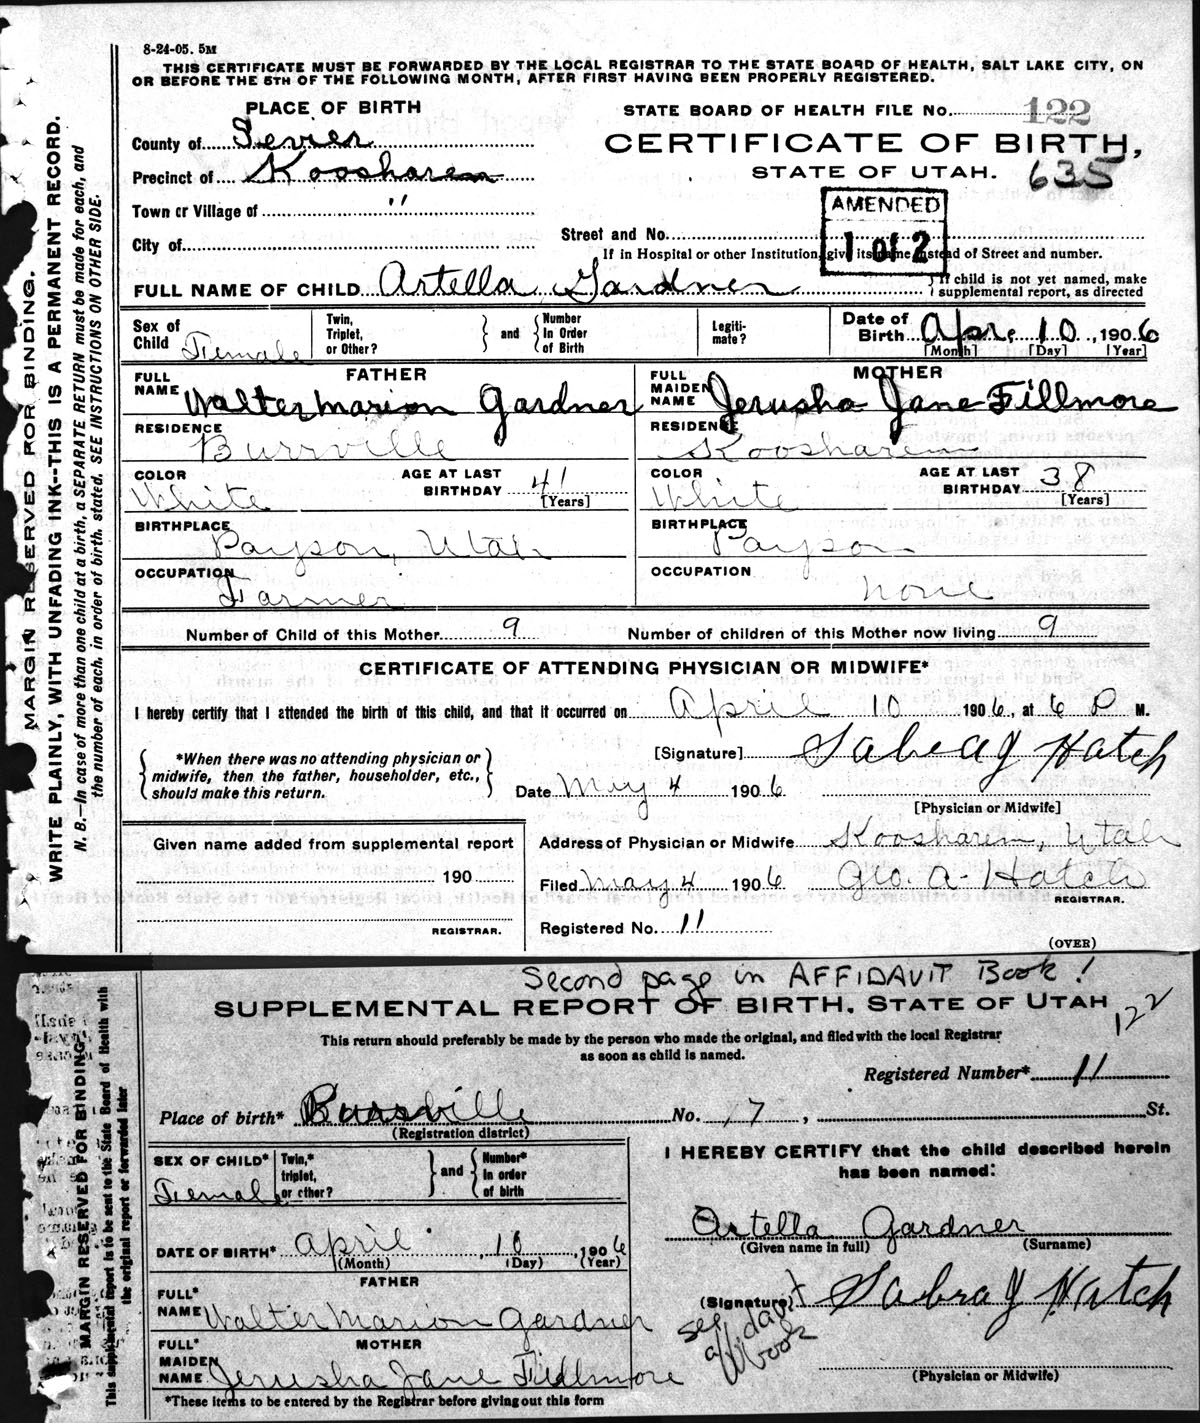 8-24-05. 5M
THIS CERTIFICATE MUST BE FORWARDED BY THE LOCAL REGISTRAR TO THE STATE BOARD OF HEALTH, SALT LAKE CITY, ON
OR BEFORE THE 5TH OF THE FOLLOWING MONTH, AFTER FIRST HAVING BEEN PROPERLY REGISTERED.
PLACE OF BIRTH
STATE BOARD OF HEALTH FILE No. 122
County of Sevier
CERTIFICATE OF BIRTH,
Precinct of Koosharem
STATE OF UTAH. 635
Town or Village of "
AMENDED
1 of 2
City of
Street and No.
If in Hospital or other Institution, give its name instead of Street and number.
FULL NAME OF CHILD Artella Gardner
If child is not yet named, make
supplemental report, as directed
Sex of Child Female
Twin, Triplet, or Other?
and
Number In Order of Birth
Legiti-mate?
Date of Birth Apr. 10, 1906
[Month] [Day] [Year]
FATHER
FULL NAME Walter Marion Gardner
RESIDENCE Burrville
COLOR White
AGE AT LAST BIRTHDAY 41
[Years]
BIRTHPLACE Payson, Utah
OCCUPATION Farmer
MOTHER
FULL MAIDEN NAME Jerusha Jane Fillmore
RESIDENCE Koosharem
COLOR White
AGE AT LAST BIRTHDAY 38
[Years]
BIRTHPLACE Payson
OCCUPATION none
Number of Child of this Mother 9
Number of children of this Mother now living 9
CERTIFICATE OF ATTENDING PHYSICIAN OR MIDWIFE*
I hereby certify that I attended the birth of this child, and that it occurred on April 10 1906, at 6 P M.
*When there was no attending physician or
midwife, then the father, householder, etc.,
should make this return.
[Signature] Hatch
Date May 4 1906
[Physician or Midwife]
Given name added from supplemental report
190
REGISTRAR.
Address of Physician or Midwife Koosharem, Utah
Filed May 4 1906 Geo. A. Hatch
REGISTRAR.
Registered No. 11
(OVER)
MARGIN RESERVED FOR BINDING.
WRITE PLAINLY, WITH UNFADING INK--THIS IS A PERMANENT RECORD.
N. B.—In case of more than one child at a birth, a SEPARATE RETURN must be made for each, and
the number of each, in order of birth, stated. SEE INSTRUCTIONS ON OTHER SIDE.
Second page in AFFIDAVIT Book!
SUPPLEMENTAL REPORT OF BIRTH, STATE OF UTAH
122
This return should preferably be made by the person who made the original, and filed with the local Registrar
as soon as child is named.
Registered Number* 11
Place of birth* Burrville No. 7, St.
(Registration district)
SEX OF CHILD* Femal
Twin,* triplet, or other?
and
Number* In order of birth
DATE OF BIRTH* April 10, 1906
(Month) (Day) (Year)
FATHER
FULL* NAME Walter Marion Gardner
MOTHER
FULL* MAIDEN NAME Jerusha Jane Fillmore
*These items to be entered by the Registrar before giving out this form
I HEREBY CERTIFY that the child described herein
has been named:
Artella Gardner
(Given name in full) (Surname)
(Signature) Sabra J Hatch
see affidavit book
(Physician or Midwife)
MARGIN RESERVED FOR BINDING.
This supplemental report is to be sent to the State Board of Health with
the original report or forwarded later